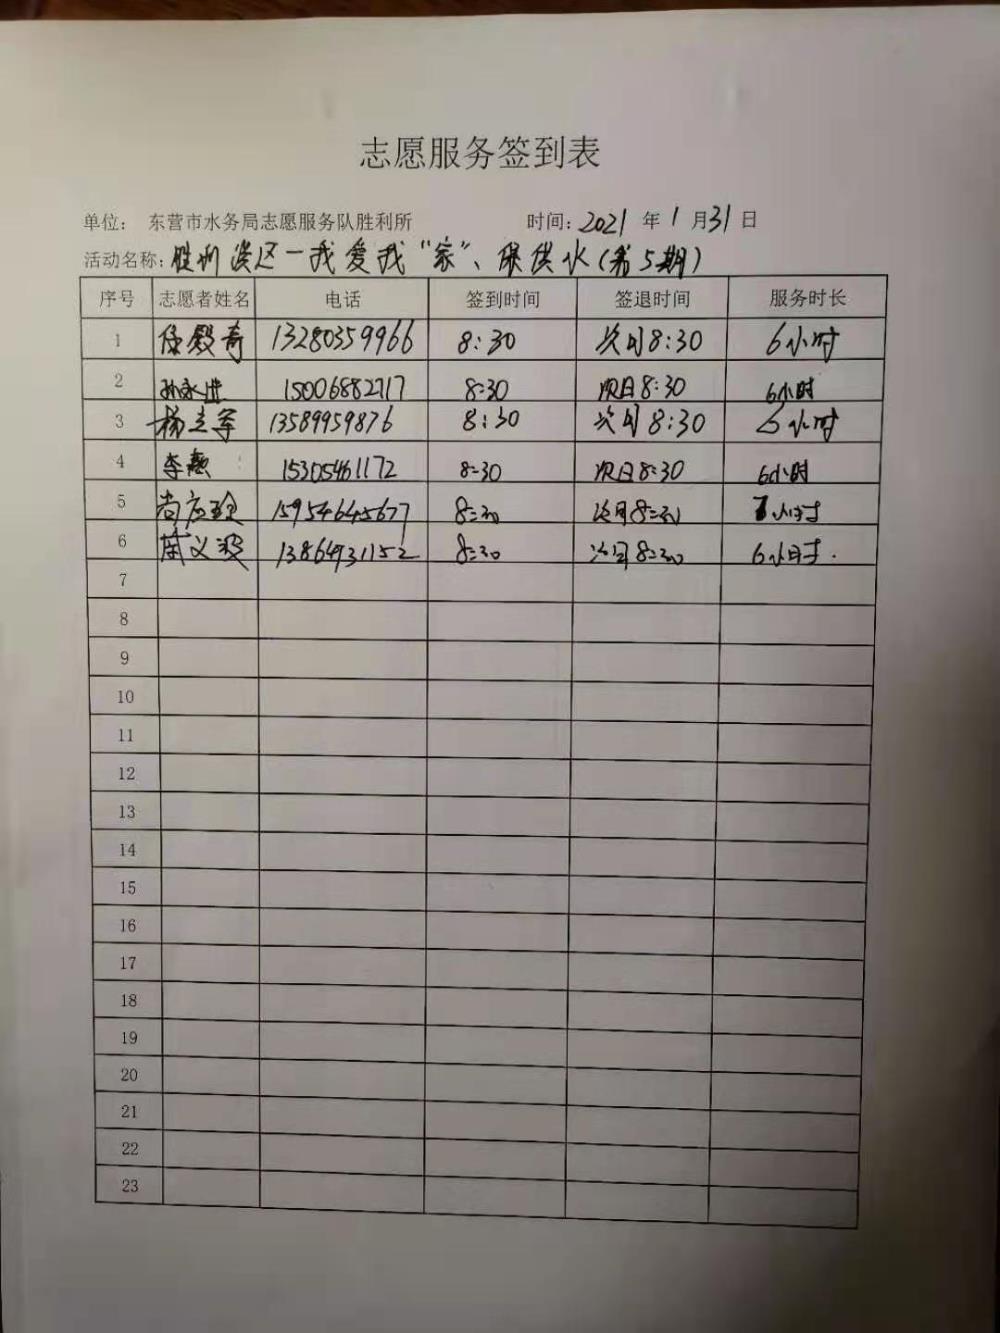 志愿服务签到表
单位: 东营市水务局志愿服务队胜利所 时间: 2021 年 1 月 31 日
活动名称: 胜利滨区一我爱我“家”、保供水(第5期)
序号 志愿者姓名 电话 签到时间 签退时间 服务时长
1 13280359966 8:30 次日8:30 6小时
2 孙永进 15006882717 8:30 次日8:30 6小时
3 杨立军 13589959876 8:30 次日8:30 6小时
4 李颖 15305461172 8:30 次日8:30 6小时
5 15954645677 8:30 次日8:30 小时
6 13864931152 8:30 次日8:30 6小时.
7
8
9
10
11
12
13
14
15
16
17
18
19
20
21
22
23